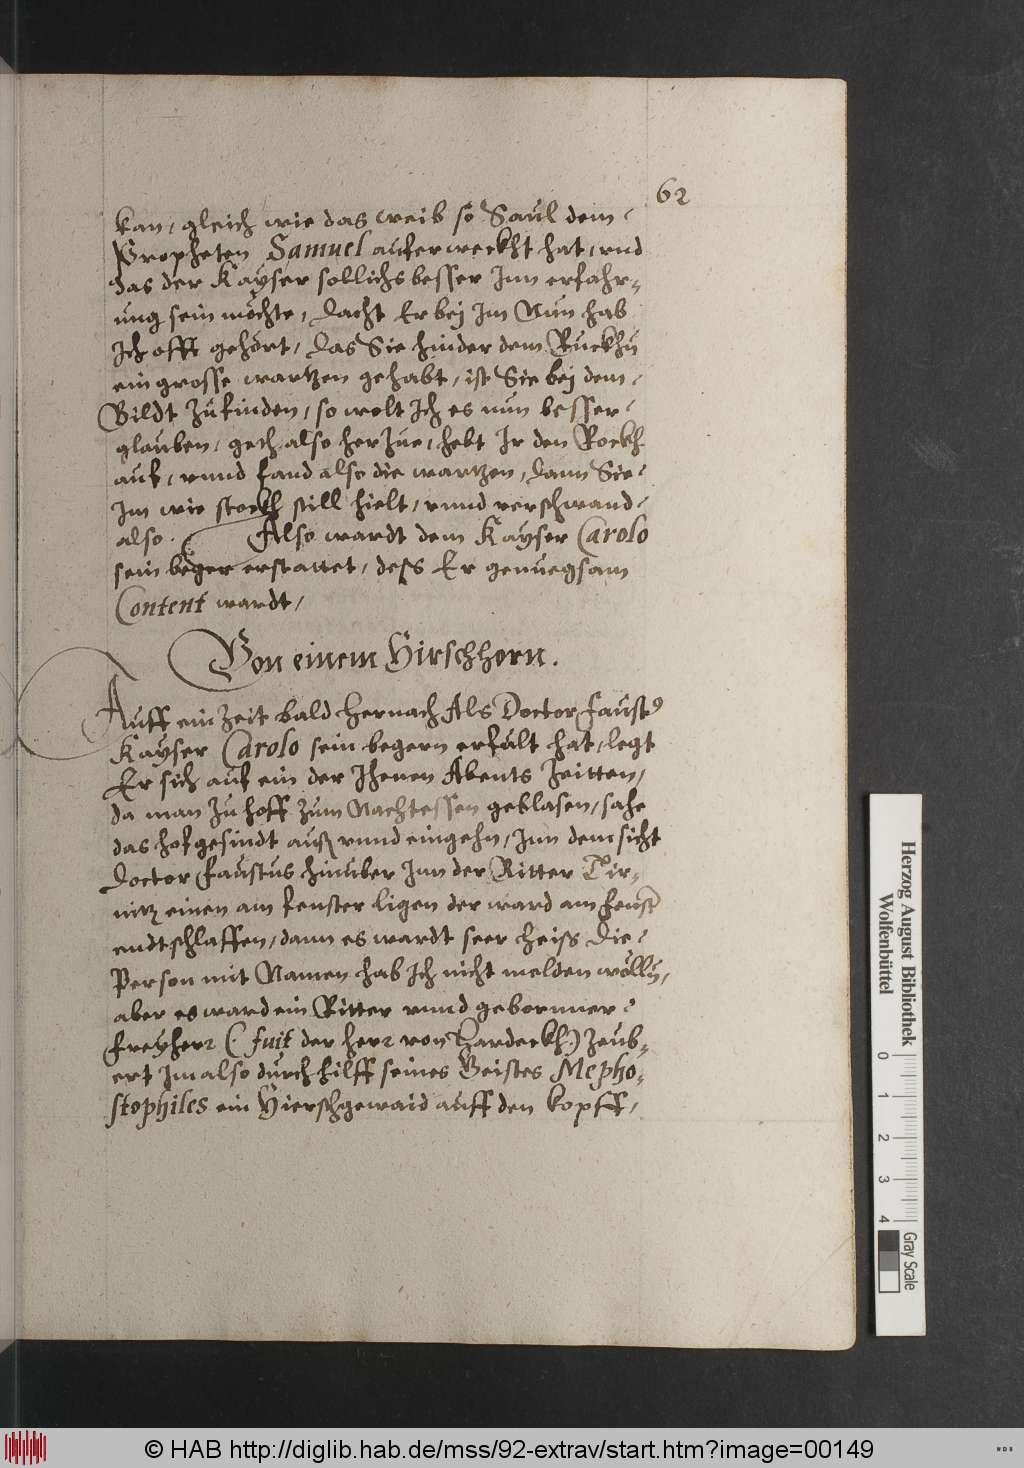 62
kan, gleich wie das weib so Saul dem
Propheten Samuel auferweckht hat, vnd
das der Kayser sollichs besser Inn erfahr-
ung sein möchte, dacht Er bej Im Nun hab
Ich offt gehört, das Sie hinder dem Ruckhn
ein grosse wartzen gehabt, ist Sie bej dem
Bildt zufinden, so wolt Ich es nun besser
glauben, geth also herzue, hebt Ir den Rockh
auf, vnnd fand also die wartzen, dann Sie
Im wie stockh still hielt, vnnd verschwand
also. Also wardt dem Kayser Carolo
sein beger erstattet, dess Er genuegsam
Content wardt,
Von einem Hirschhorn.
Auff ein Zeit bald hernach Als Doctor Faustus
Kayser Carolo sein begern erfult hat, legt
Er sich auf ein der Jhenen Abents Zeitten,
da man zu hoff zum Nachtessen geblasen, sahe
das hofgesindt auß vnnd eingehn, Inn dem sicht
Doctor Faustus hinuber Inn der Ritter Tir-
nitz einen am fenster ligen der ward am fenster
endtschlaffen, dann es wardt seer heiss die
Person mit Namen hab Ich nicht melden wölln,
aber es ward ein Ritter vnnd gebornner
Freyherr (. fuit der herr von Hardeckh.) Zeub-
ert Im also durch hilff seines Geistes Mepho-
stophiles ein Hierschgewaid auff den kopff,
Herzog August Bibliothek
Wolfenbüttel
0 1 2 3 4
Gray Scale
© HAB http://diglib.hab.de/mss/92-extrav/start.htm?image=00149
WDB